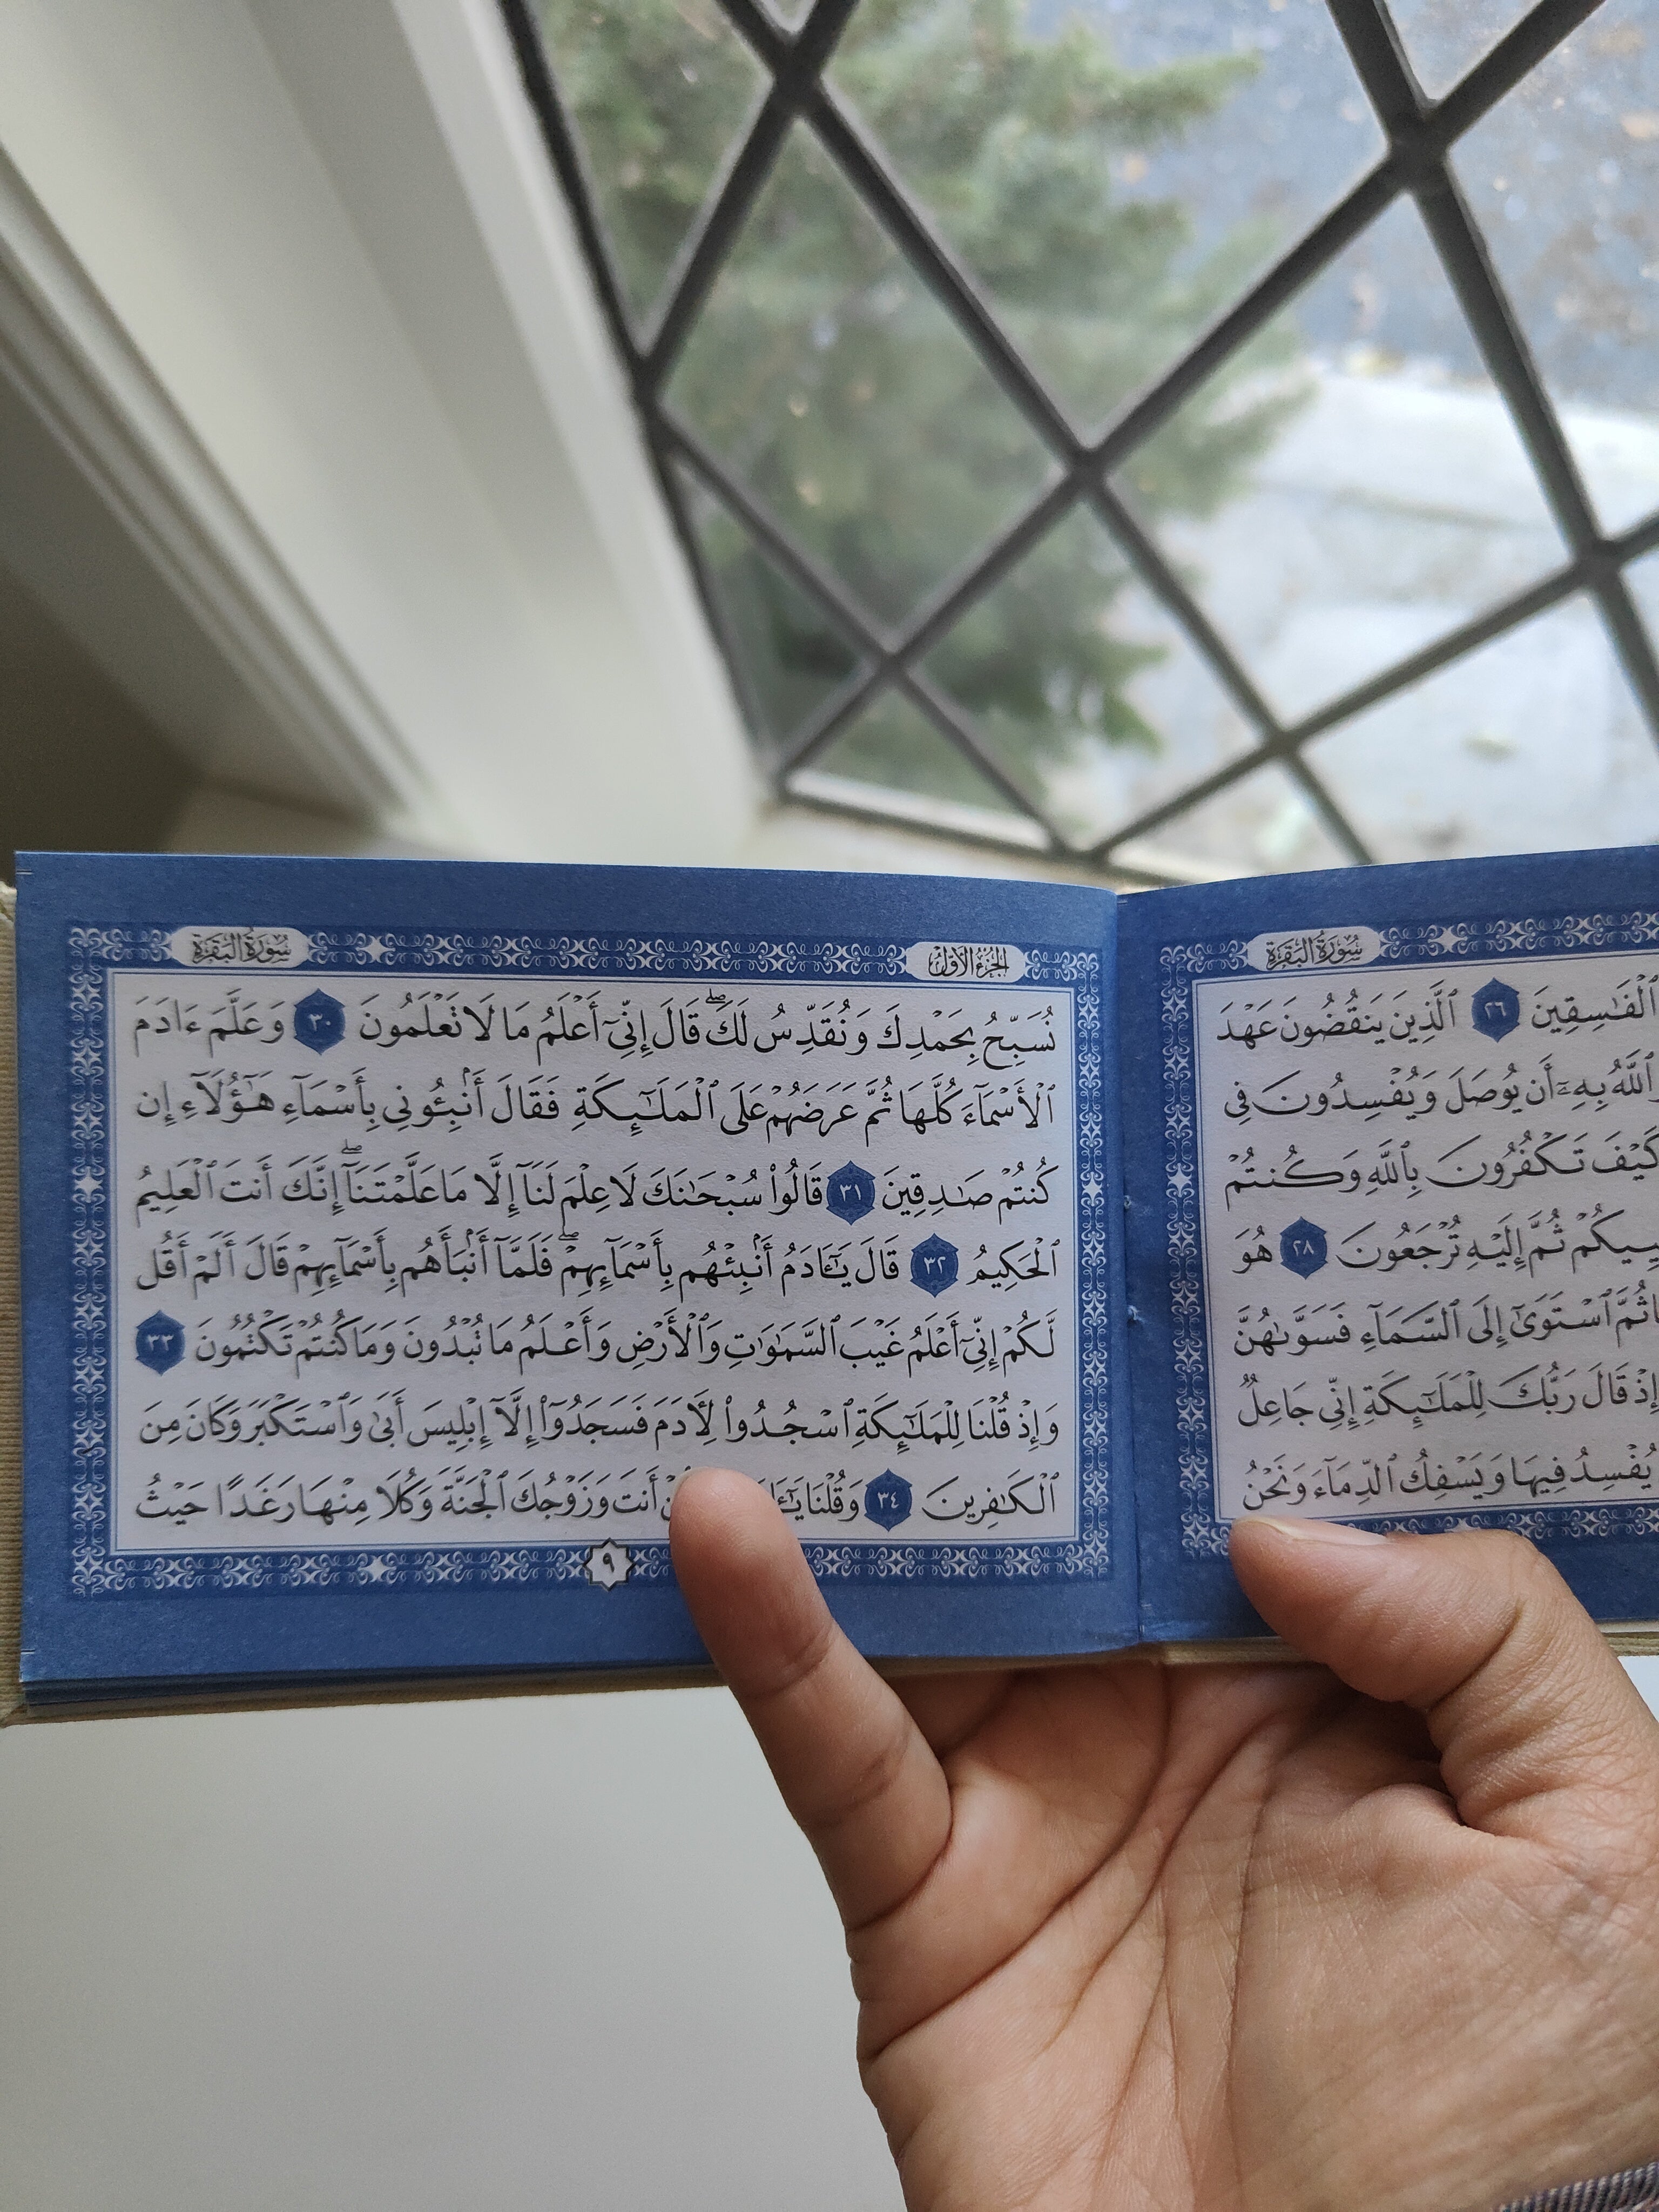 سُورَةُ البَقَرَةِ
ٱلْفَٰسِقِينَ ٢٦ ٱلَّذِينَ يَنقُضُونَ عَهْدَ
ٱللَّهُ بِهِۦٓ أَن يُوصَلَ وَيُفْسِدُونَ فِى
كَيْفَ تَكْفُرُونَ بِٱللَّهِ وَكُنتُمْ
ثُمَّ إِلَيْهِ تُرْجَعُونَ ٢٨ هُوَ
ثُمَّ ٱسْتَوَىٰٓ إِلَى ٱلسَّمَآءِ فَسَوَّىٰهُنَّ
إِذْ قَالَ رَبُّكَ لِلْمَلَٰٓئِكَةِ إِنِّى جَاعِلٌ
يُفْسِدُ فِيهَا وَيَسْفِكُ ٱلدِّمَآءَ وَنَحْنُ
الجُزْءُ الأَوَّلُ
سُورَةُ البَقَرَةِ
نُسَبِّحُ بِحَمْدِكَ وَنُقَدِّسُ لَكَ ۖ قَالَ إِنِّىٓ أَعْلَمُ مَا لَا تَعْلَمُونَ ٣٠ وَعَلَّمَ ءَادَمَ
ٱلْأَسْمَآءَ كُلَّهَا ثُمَّ عَرَضَهُمْ عَلَى ٱلْمَلَٰٓئِكَةِ فَقَالَ أَنۢبِـُٔونِى بِأَسْمَآءِ هَٰٓؤُلَآءِ إِن
كُنتُمْ صَٰدِقِينَ ٣١ قَالُوا۟ سُبْحَٰنَكَ لَا عِلْمَ لَنَآ إِلَّا مَا عَلَّمْتَنَآ ۖ إِنَّكَ أَنتَ ٱلْعَلِيمُ
ٱلْحَكِيمُ ٣٢ قَالَ يَٰٓـَٔادَمُ أَنۢبِئْهُم بِأَسْمَآئِهِمْ ۖ فَلَمَّآ أَنۢبَأَهُم بِأَسْمَآئِهِمْ قَالَ أَلَمْ أَقُل
لَّكُمْ إِنِّىٓ أَعْلَمُ غَيْبَ ٱلسَّمَٰوَٰتِ وَٱلْأَرْضِ وَأَعْلَمُ مَا تُبْدُونَ وَمَا كُنتُمْ تَكْتُمُونَ ٣٣
وَإِذْ قُلْنَا لِلْمَلَٰٓئِكَةِ ٱسْجُدُوا۟ لِـَٔادَمَ فَسَجَدُوٓا۟ إِلَّآ إِبْلِيسَ أَبَىٰ وَٱسْتَكْبَرَ وَكَانَ مِنَ
ٱلْكَٰفِرِينَ ٣٤ وَقُلْنَا أَنتَ وَزَوْجُكَ ٱلْجَنَّةَ وَكُلَا مِنْهَا رَغَدًا حَيْثُ
٩